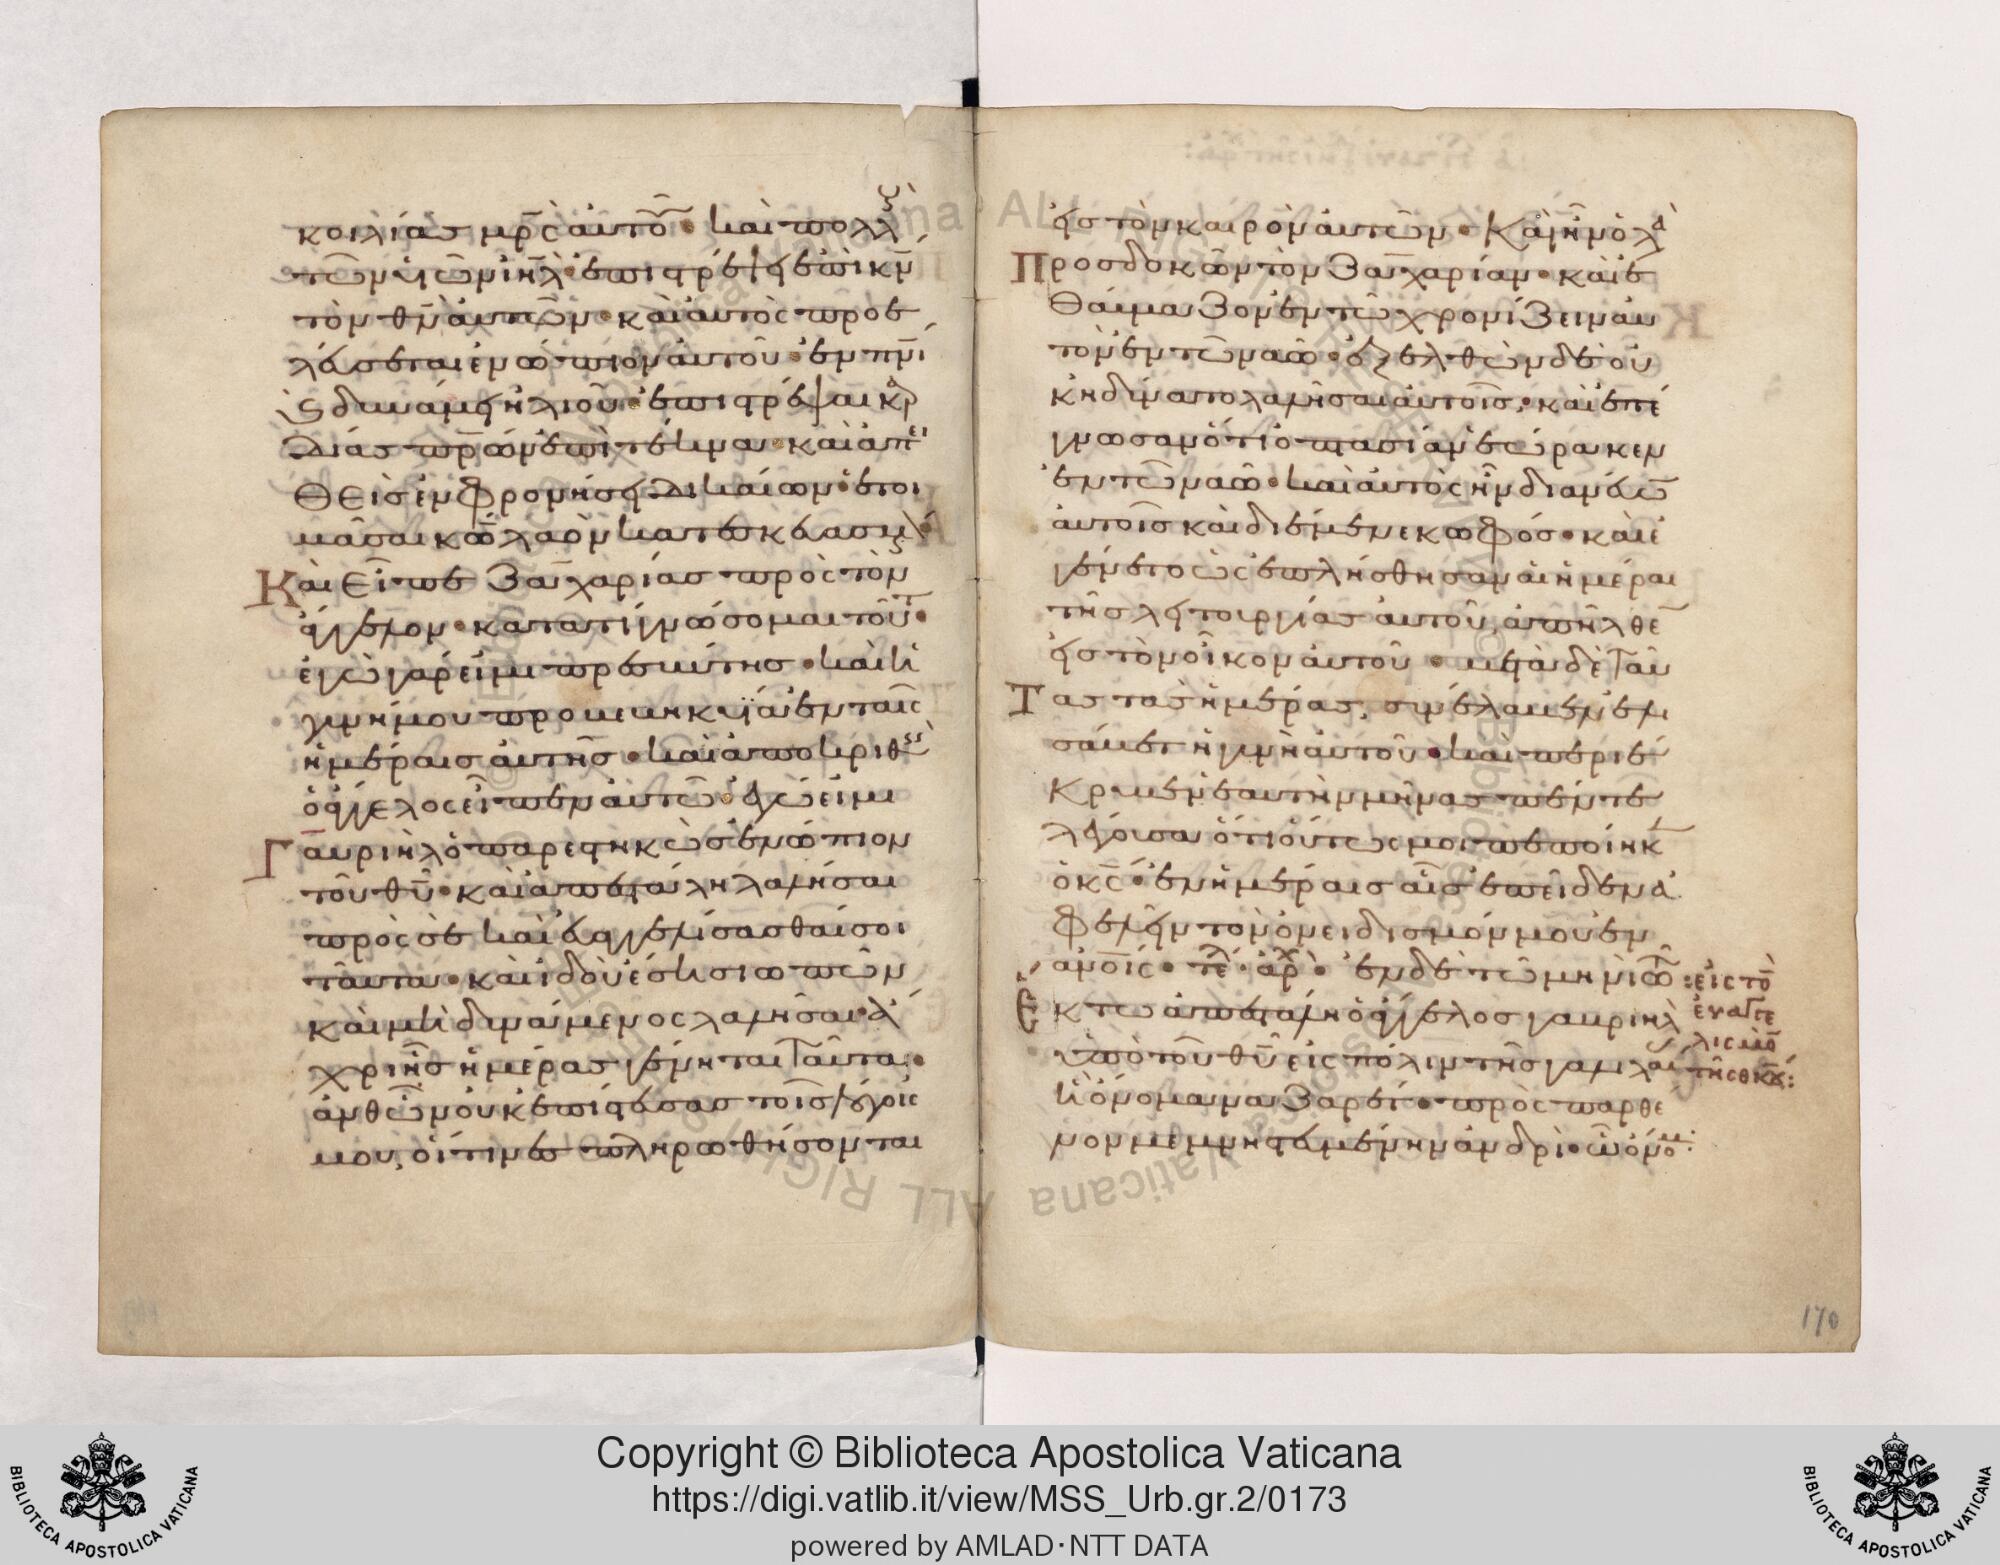 κοιλίας μρ̅ς αὐτοῦ· καὶ πολλοὺς
τῶν υἱῶν ιη̅λ ἐπιστρέψει ἐπὶ κν̅
τὸν θν̅ αὐτῶν· καὶ αὐτὸς προε
λεύσεται ἐνώπιον αὐτοῦ ἐν πνι̅
κ δυνάμει ἠλιοῦ· ἐπιστρέψαι καρ
δίας πρ̅ων ἐπὶ τέκνα· καὶ ἀπει
θεῖς ἐν φρονήσει δικαίων· ἑτοι
μᾶσαι κω̅ λαὸν κατεσκευασμ
Καὶ εἶπε Ζαχαρίας πρὸς τὸν
ἄγγελον· κατὰ τί γνώσομαι τοῦτ·
ἐγὼ γάρ εἰμι πρεσβύτης· καὶ ἡ
γυνή μου προβεβηκυῖα ἐν ταῖς
ἡμέραις αὐτῆς· καὶ ἀποκριθεὶς
ὁ ἄγγελος εἶπεν αὐτῶ· ἐγώ εἰμι
Γαβριὴλ ὁ παρεστηκὼς ἐνώπιον
τοῦ θυ̅· καὶ ἀπεστάλην λαλῆσαι
πρὸς σὲ καὶ εὐαγγελίσασθαί σοι
ταῦτα· καὶ ἰδοὺ ἔση σιωπῶν
καὶ μὴ δυνάμενος λαλῆσαι· ἄ
χρι ἧς ἡμέρας γένηται ταῦτα·
ἀνθ' ὧν οὐκ ἐπίστευσας τοῖς λόγοις
μου, οἵτινες πληρωθήσονται
εἰς τὸν καιρὸν αὐτῶν· Καὶ ἦν ὁ λα
Προσδοκῶν τὸν Ζαχαρίαν· καὶ ἐ
θαύμαζον ἐν τῶ χρονίζειν αὐ
τὸν ἐν τῶ ναῶ· ἐξελθὼν δὲ οὐ
κ ἠδύνατο λαλῆσαι αὐτοῖς· καὶ ἐπέ
γνωσαν ὅτι ὀπτασίαν ἑώρακεν
ἐν τῶ ναῶ· καὶ αὐτὸς ἦν διανεύω
αὐτοῖς καὶ διέμενε κωφός· καὶ ἐ
γένετο ὡς ἐπλήσθησαν αἱ ἡμέραι
τῆς λειτουργίας αὐτοῦ, ἀπῆλθε
εἰς τὸν οἶκον αὐτοῦ· μετὰ δὲ ταύ
Τας τὰς ἡμέρας, συνέλαβεν ἐλι
σάβετ ἡ γυνὴ αὐτοῦ· καὶ περιέ
κρυβεν ἑαυτὴν μῆνας πέντε
λέγουσα ὅτι οὕτως μοι πεποίηκ
ὁ κς̅ ἐν ἡμέραις αἷς ἐπεῖδεν ἀ
φελεῖν τὸν ὀνειδισμόν μου ἐν
ἀνοις· τελ· ἀρχ· ἐν δὲ τῶ μηνὶ τῶ
Ἕκτω ἀπεστάλη ὁ ἄγγελος γαβριηλ
ὑπὸ τοῦ θυ̅ εἰς πόλιν τῆς γαλιλαί
ἧ ὄνομα ναζαρέτ· πρὸς παρθέ
νον μεμνηστευμένην ἀνδρί· ὧ ὄνομ
: εἰς τὸ
ἐυαγγε
λισμὸ
τῆς θκου:
170
Copyright © Biblioteca Apostolica Vaticana
https://digi.vatlib.it/view/MSS_Urb.gr.2/0173
powered by AMLAD·NTT DATA
BIBLIOTECA APOSTOLICA VATICANA
BIBLIOTECA APOSTOLICA VATICANA